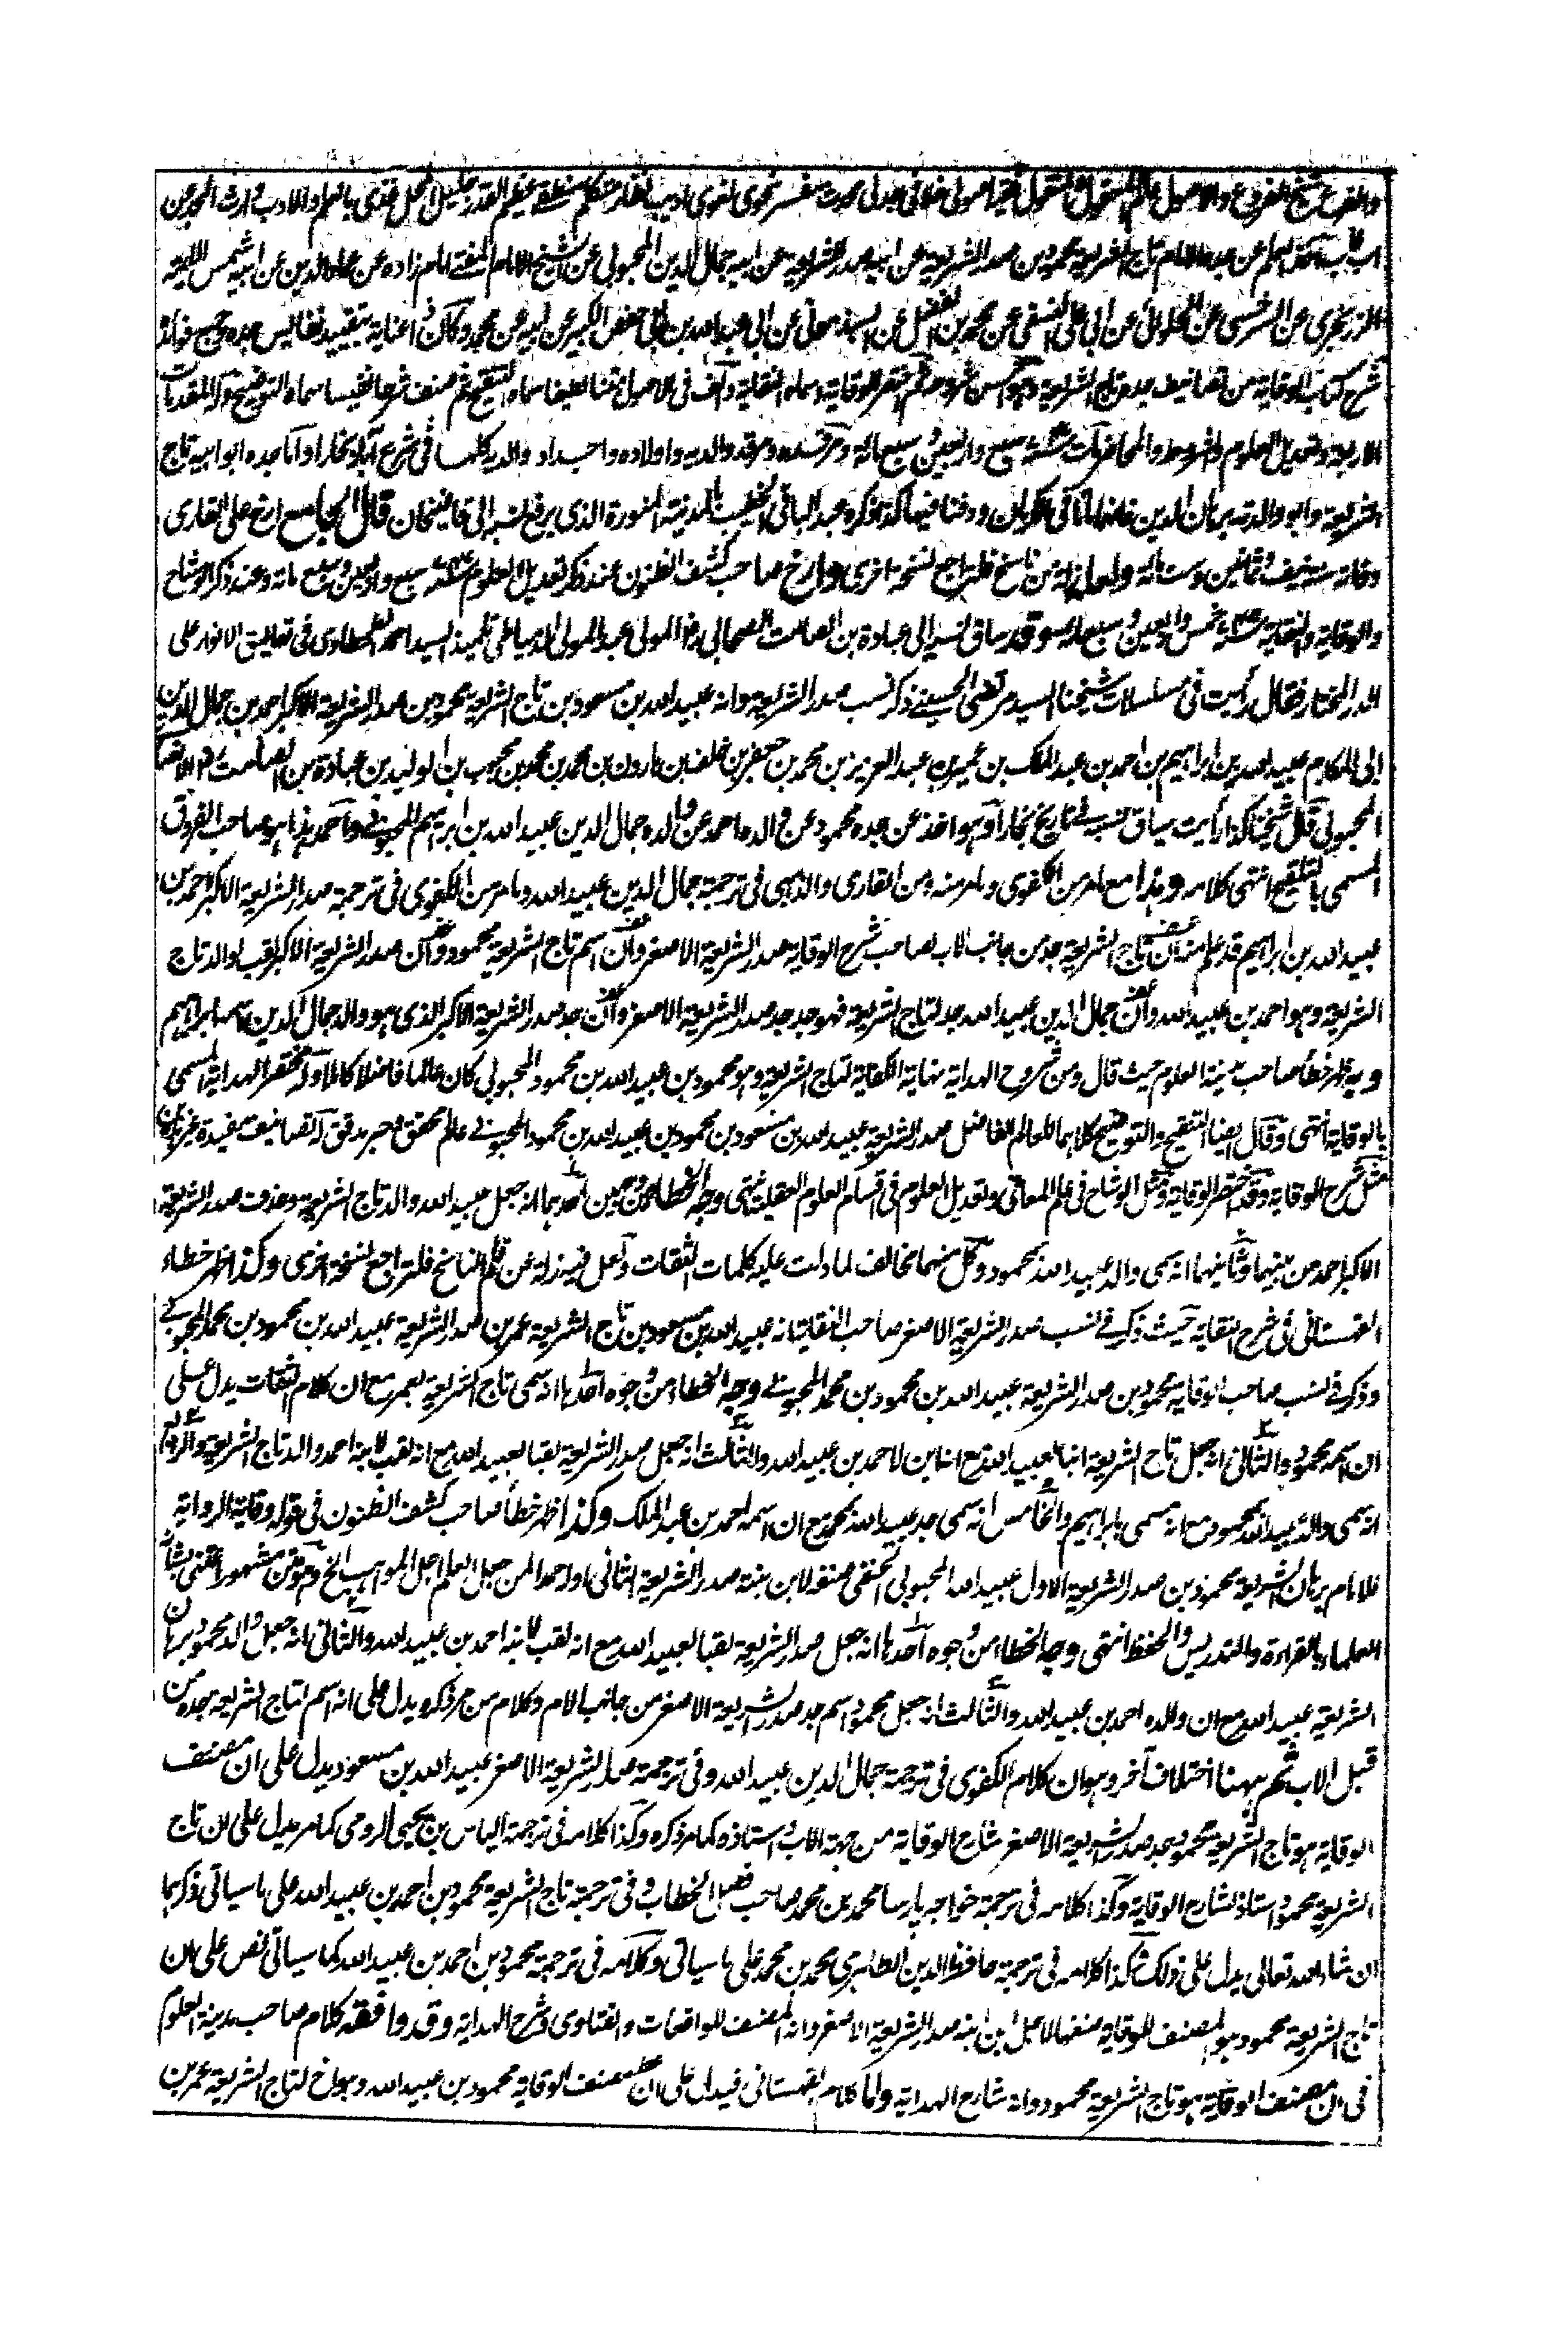 والفرع شيخ الفروع والاصول عالم المعقول والمنقول فقيه اصولى خلافى جدلى محدث مفسر نحوى لغوى اديب نظار متكلم منطقى عظيم القدر جليل المحل غذى بالعلم والادب ورث المجد عن
اب فاب اخذ العلم عن جده الامام تاج الشريعة محمود بن صدر الشريعة عن ابيه صدر الشريعة عن ابيه جمال الدين المحبوبى عن الشيخ الامام المفتى امام زاده عن عماد الدين عن ابيه شمس الائمة
الزرنجرى عن السرخسى عن الحلوانى عن ابى على النسفى عن محمد بن الفضل عن السبذمونى عن ابى عبد الله بن ابى حفص الكبير عن ابيه عن محمد وكان ذا عناية بتقييد نفائس جده وجمع فوائده
شرح كتاب الوقاية من تصانيف جده تاج الشريعة وهو احسن شروحه ثم اختصر الوقاية وسماه النقاية والف فى الاصول متنا لطيفا سماه التنقيح ثم صنف شرحا نفيسا سماه التوضيح وله المقدمات
الاربعة وتعديل العلوم والشروط والمحاضر مات سنة سبع واربعين وسبع مائة ومرقده ومرقد والديه واولاده واجداد والديه كلها فى شرع آباد بخارا واما جده ابو ابيه تاج
الشريعة وابو والدته برهان الدين فانهما ماتا فى كرمان ودفنا فيها كذا ذكره عبد الباقى الخطيب بالمدينة المنورة الذى يرفع نسبه الى قاضيخان قال الجامع ارخ على القارى
وفاته سنة نيف وثمانين وستمائة ولعله زلة من ناسخ فليراجع نسخة اخرى وارخ صاحب كشف الظنون عند ذكر تعديل العلوم سنة سبع واربعين وسبع مائة وعند ذكر الوشاح
والوقاية والنقاية سنة خمس واربعين وسبع مائة وقد ساق نسبه الى عبادة بن الصامت الصحابى المولى عبد المولى الدمياطى تلميذ السيد احمد الطحطاوى فى تعاليق الانوار على
الدر المختار فقال رأيت فى مسلسلات شيخنا السيد مرتضى الحسينى ذكر نسب صدر الشريعة وانه عبيد الله بن مسعود بن تاج الشريعة محمود بن صدر الشريعة الاكبر احمد بن جمال الدين
ابى المكارم عبيد الله بن ابراهيم بن احمد بن عبد الملك بن عمير بن عبد العزيز بن محمد بن جعفر بن خلف بن هارون بن محمد بن محمد بن محبوب بن الوليد بن عبادة بن الصامت الانصارى
المحبوبى قال شيخنا كذا رأيت سياق نسبه فى تاريخ بخارا وهو اخذ عن جده محمود عن والده احمد عن والده جمال الدين عبيد الله بن ابراهيم المحبوبى واحمد هذا هو صاحب الفروق
المسمى بالتلقيح انتهى كلامه وهذا مع ما مر من الكفوى وما مر منه ومن القارى والذهبى فى ترجمة جمال الدين عبيد الله وما مر من الكفوى فى ترجمة صدر الشريعة الاكبر احمد بن
عبيد الله بن ابراهيم قد علم منه ان تاج الشريعة جد من جانب الاب لصاحب شرح الوقاية صدر الشريعة الاصغر وان اسم تاج الشريعة محمود وان صدر الشريعة الاكبر لقب لوالد تاج
الشريعة وهو احمد بن عبيد الله وان جمال الدين عبيد الله جد لتاج الشريعة فهو جد جد صدر الشريعة الاصغر وان جد صدر الشريعة الاكبر الذى هو والد جمال الدين اسمه ابراهيم
وبه ظهر خطأ صاحب مدينة العلوم حيث قال ومن شروح الهداية نهاية الكفاية لتاج الشريعة وهو محمود بن عبيد الله بن محمود المحبوبى كان عالما فاضلا كاملا وله مختصر الهداية المسمى
بالوقاية انتهى وقال ايضا التنقيح والتوضيح كلاهما للعالم الفاضل صدر الشريعة عبيد الله بن مسعود بن محمود بن عبيد الله بن محمود المحبوبى عالم محقق وحبر مدقق له تصانيف مفيدة غير هذين
مثل شرح الوقاية وقد اختصر الوقاية ومثل الوشاح فى علم المعانى وتعديل العلوم فى اقسام العلوم العقلية انتهى وجه الخطأ من وجهين احدهما انه جعل عبيد الله والد تاج الشريعة وحذف صدر الشريعة
الاكبر احمد من بينهما وثانيهما انه سمى والد عبيد الله محمود وكل منهما مخالف لما دلت عليه كلمات الثقات ولعل فيه زلة عن قلم الناسخ فلتراجع نسخة اخرى وكذا ظهر خطاء
القهستانى فى شرح النقاية حيث ذكر فى نسب صدر الشريعة الاصغر صاحب النقاية انه عبيد الله بن مسعود بن تاج الشريعة عمر بن صدر الشريعة عبيد الله بن محمود بن محمد المحبوبى
وذكر فى نسب صاحب الوقاية محمود بن صدر الشريعة عبيد الله بن محمود بن محمد المحبوبى وجه الخطاء من وجوه احدها انه سمى تاج الشريعة بعمر مع ان كلام الثقات يدل على
ان اسمه محمود والثانى انه جعل تاج الشريعة ابنا لعبيد الله مع انه ابن لاحمد بن عبيد الله والثالث انه جعل صدر الشريعة لقبا لعبيد الله مع انه لقب لابنه احمد والد تاج الشريعة والرابع
انه سمى والد عبيد الله بمحمود مع انه مسمى بابراهيم والخامس انه سمى جد عبيد الله بمحمد مع ان اسمه احمد بن عبد الملك وكذا ظهر خطأ صاحب كشف الظنون فى قوله وقاية الرواية
للامام برهان الشريعة محمود بن صدر الشريعة الاول عبيد الله المحبوبى الحنفى صنفه لابن بنته صدر الشريعة الثانى اوله حمدا لمن جعل العلم اجل المواهب الخ وهو متن مشهور اعتنى بشأنه
العلماء بالقراءة والتدريس والحفظ انتهى وجه الخطاء من وجوه احدها انه جعل صدر الشريعة لقبا لعبيد الله مع انه لقب لابنه احمد بن عبيد الله والثانى انه جعل والد محمود برهان
الشريعة عبيد الله مع ان والده احمد بن عبيد الله والثالث انه جعل محمود اسم جد صدر الشريعة الاصغر من جانب الام وكلام من مر ذكره يدل على انه اسم لتاج الشريعة جده من
قبل الاب ثم ههنا اختلاف آخر وهو ان كلام الكفوى فى ترجمة جمال الدين عبيد الله وفى ترجمة صدر الشريعة الاصغر عبيد الله بن مسعود يدل على ان مصنف
الوقاية هو تاج الشريعة محمود جد صدر الشريعة الاصغر شارح الوقاية من جهة الاب واستاذه كما مر ذكره وكذا كلامه فى ترجمة الياس بن يحيى الرومى كما مر يدل على ان تاج
الشريعة محمود استاذ لشارح الوقاية وكذا كلامه فى ترجمة خواجه پارسا محمد بن محمد صاحب فصل الخطاب وفى ترجمة تاج الشريعة محمود بن احمد بن عبيد الله على ما سياتى ذكرهما
ان شاء الله تعالى يدل على ذلك وكذا كلامه فى ترجمة حافظ الدين الطاهرى محمد بن محمد على ما سياتى وكلامه فى ترجمة محمود بن احمد بن عبيد الله كما سياتى نص على ان
تاج الشريعة محمود هو المصنف للوقاية صنفها لاجل ابن ابنه صدر الشريعة الاصغر وانه المصنف للواقعات والفتاوى وشرح الهداية وقد وافقه كلام صاحب مدينة العلوم
فى ان مصنف الوقاية هو تاج الشريعة محمود وانه شارح الهداية واما كلام القهستانى فيدل على ان مصنف الوقاية محمود بن عبيد الله وهو اخ لتاج الشريعة عمر بن